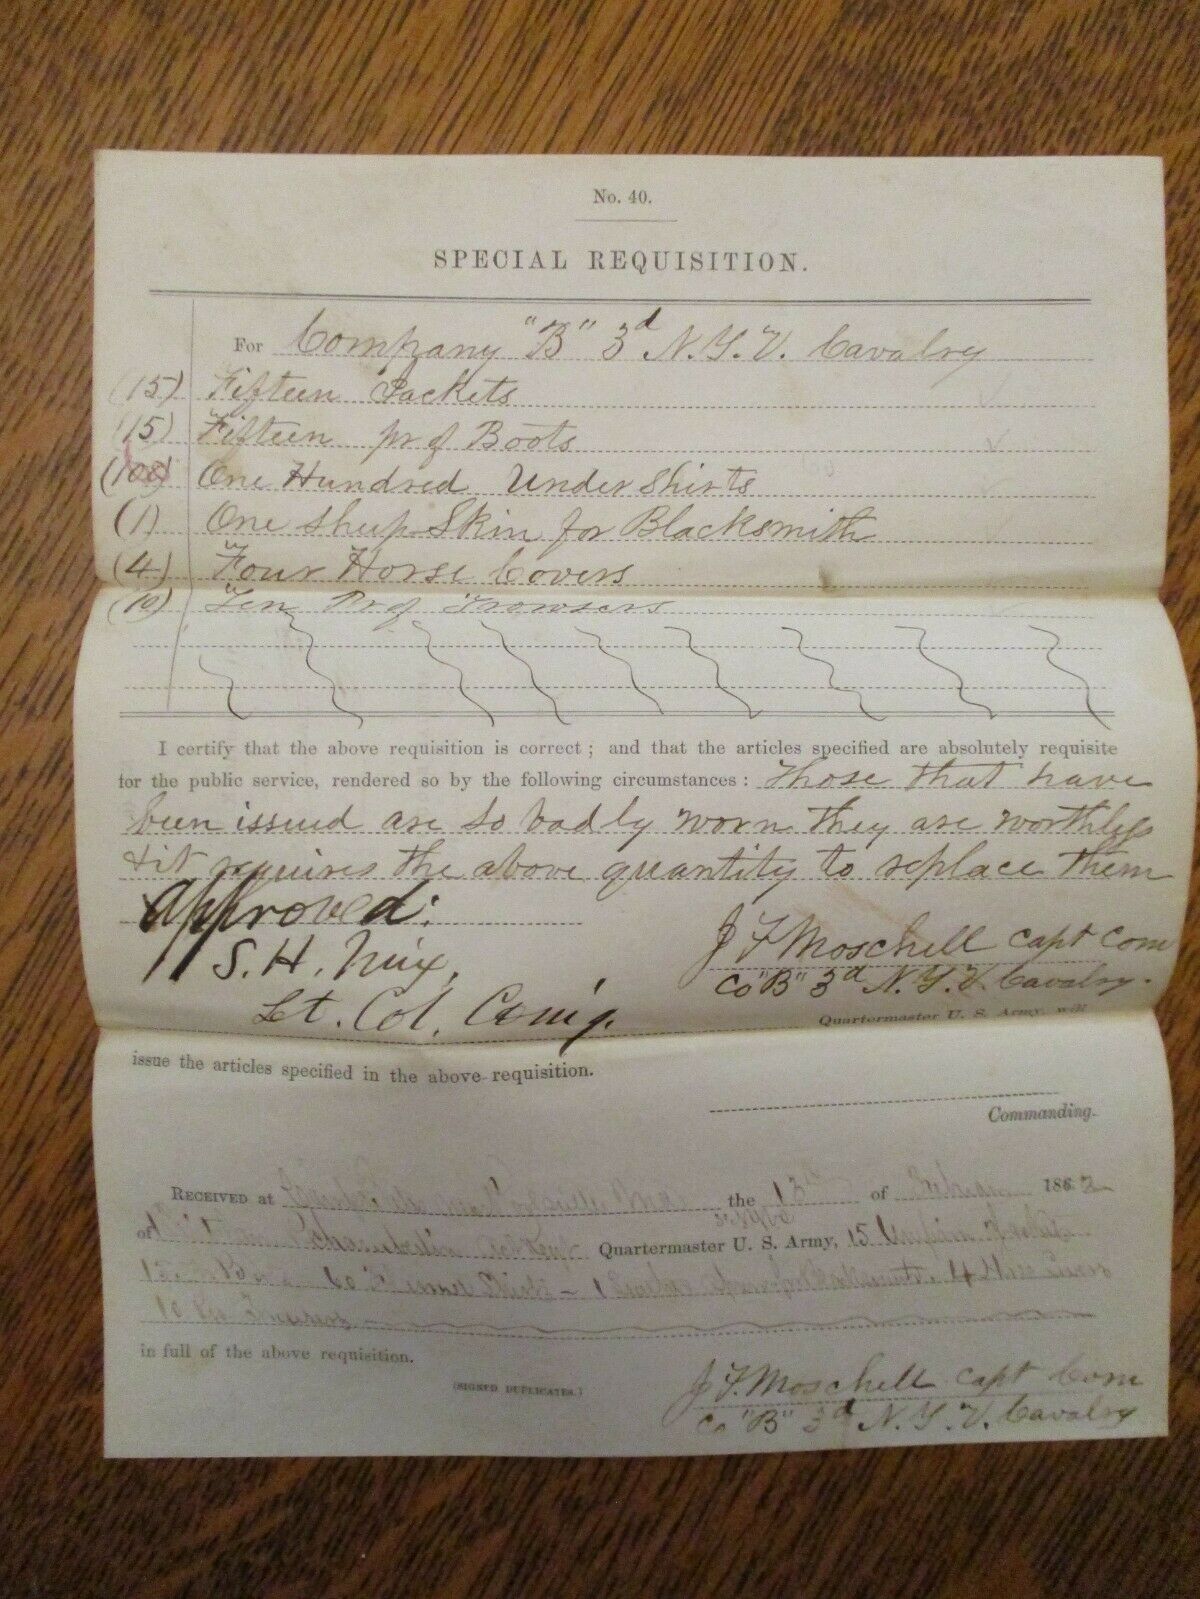 No. 40.
SPECIAL REQUISITION.
For Company "B" 3d N.Y.V. Cavalry
(15) Fifteen Jackets
(15) Fifteen pr of Boots
(100) One Hundred Under Shirts
(1) One Sheep Skin for Blacksmith
(4) Four Horse Covers
(10) Ten Pr of Trowsers
I certify that the above requisition is correct; and that the articles specified are absolutely requisite
for the public service, rendered so by the following circumstances: Those that have
been issued are so badly worn they are worthless
& it requires the above quantity to replace them
Approved:
S. H. Mix,
Lt. Col. Comg.
J F Moschell Capt Com
Co "B" 3d N.Y.V. Cavalry.
Quartermaster U. S. Army, will
issue the articles specified in the above requisition.
Commanding.
RECEIVED at the 13th of 1862
of Quartermaster U. S. Army, 15
60 Shirts – 1 4 Horse Covers
10 Prs Trowsers
in full of the above requisition.
(SIGNED DUPLICATES.)
J F. Moschell Capt Com
Co "B" 3d N.Y.V. Cavalry